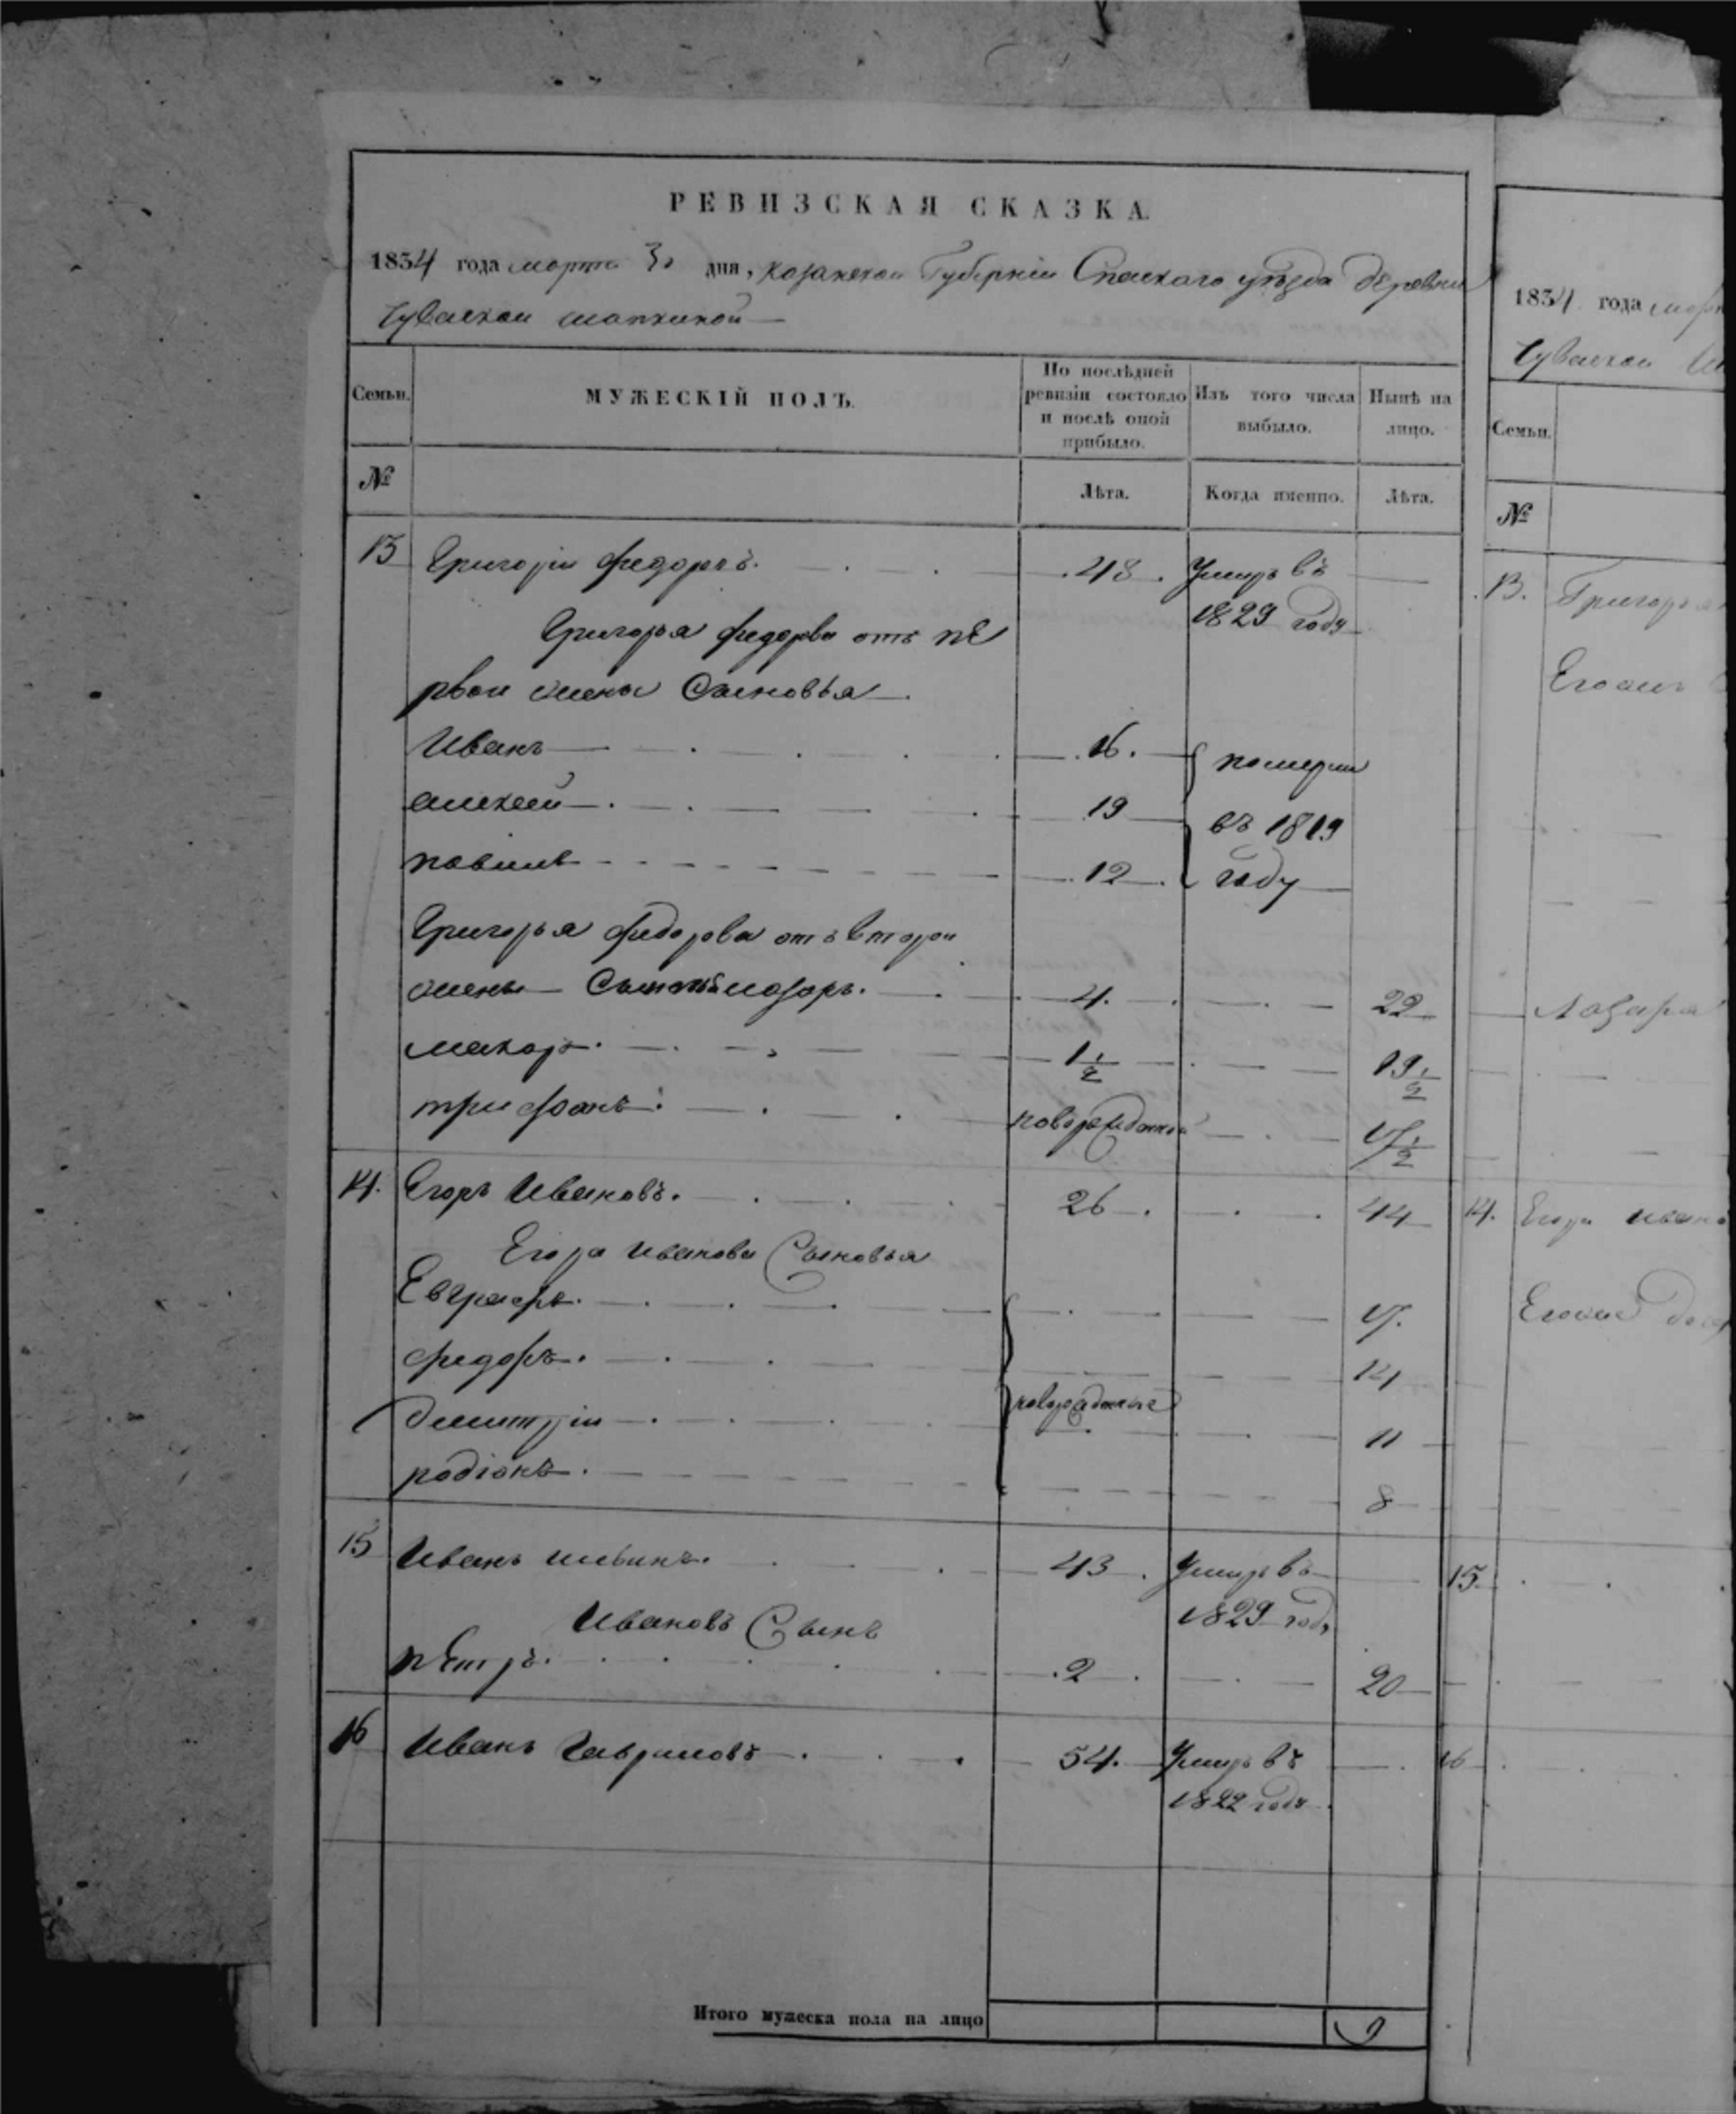 РЕВИЗСКАЯ СКАЗКА
1834 года марта 30 дня, казанской Губернiи Спаскаго уѣзда деревни
Чуваской шапкиной
Семьи.
МУЖЕСКІЙ ПОЛЪ.
По послѣдней ревизіи состояло и послѣ оной прибыло.
Изъ того числа выбыло.
Нынѣ на лицо.
№
Лѣта.
Когда именно.
Лѣта.
13 Григорiи федоръвъ. 48. Умиръ въ
1829 году
Григорья федорва отъ пе
рвои жены Сыновья
Иванъ 16. померли
алексеи 19 въ 1819
павилъ 12. году
Григорья федорова отъ второи
жены Сыновья лазаръ. 4. 22
макаръ. 1 1/2 19 1/2
трифонъ. новорожденной 17 1/2
14. Егоръ Ивановъ. 26. 44
Егора иванова Сыновья
Евграфъ. 17.
федоръ. 14
новорожденые
дмитрiи 11
родiонъ. 8
15 Иванъ 43. Умиръ въ
1829 году
Ивановъ Сынъ
пЕтръ. 2. 20
16 Иванъ Гавриловъ 54. Умиръ въ
1822 году
Итого мужеска пола на лицо 9
1834 года мар
Чуваской
Семьи.
№
13. Григорья
Лазаря
14. Егора ивано
Егоров
15.
16